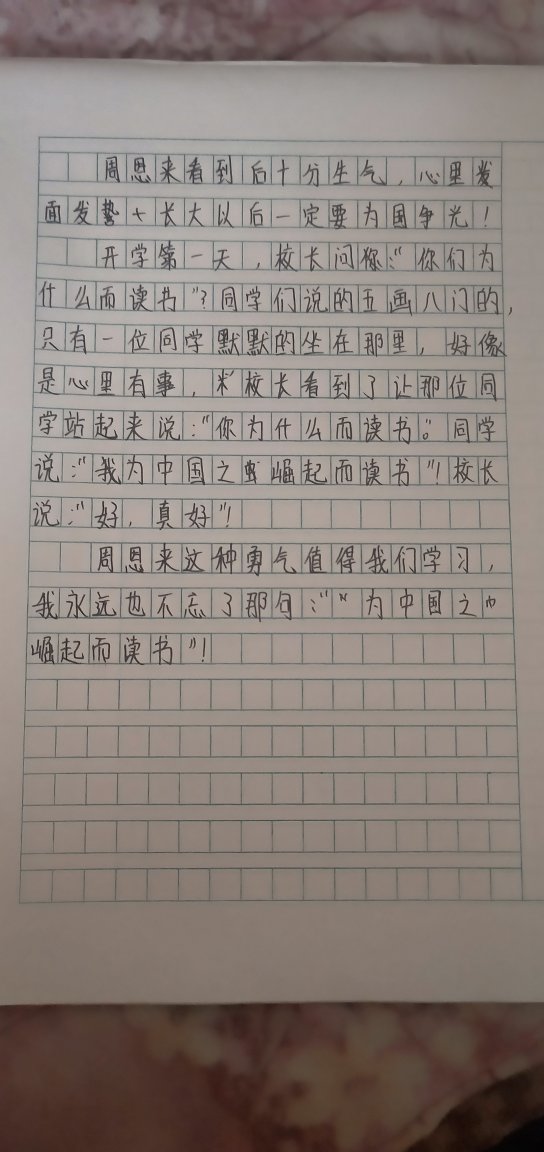 周恩来看到后十分生气，心里发
面发誓长大以后一定要为国争光！
开学第一天，校长问你：“你们为
什么而读书”？同学们说的五画八门的，
只有一位同学默默的坐在那里，好像
是心里有事，校长看到了让那位同
学站起来说：“你为什么而读书。”同学
说：“我为中国之崛起而读书”！校长
说：“好，真好”！
周恩来这种勇气值得我们学习，
我永远也不忘了那句：“为中国之
崛起而读书”！